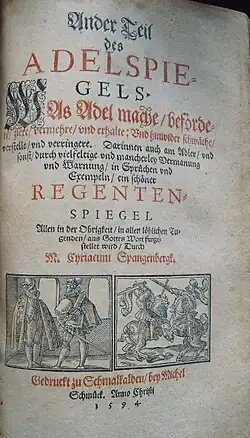 Ander Teil
des
ADELSPIE-
GELS.
WAs Adel mache / beförde-
re, ziere / vermehre / vnd erhalte: Vnd hinwider schwäche /
verstelle / vnd verringere. Darinnen auch am Adler / vnd
sonst / durch vielfeltige vnd mancherley Vermanung
vnd Warnung / in Sprüchen vnd
Exempeln / ein schöner
REGENTEN-
SPIEGEL
Allen in der Obrigkeit / in allen löblichen Tu-
genden / aus Gottes Wort fürge-
stellet wird / Durch
M. Cyriacum Spangenbergk.
Gedruckt zu Schmalkalden / bey Michel
Schmück. Anno Christi
1594